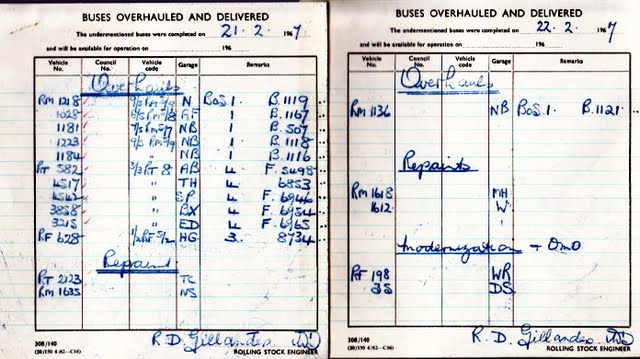 BUSES OVERHAULED AND DELIVERED
The undermentioned buses were completed on 21. 2. 1967
and will be available for operation on 196
Vehicle No. Council No. Vehicle code Garage Remarks
Overhauls
RM 1218 N BOS 1. B.1119
1028 AF 1 B.1167
1181 NB 1 B.507
1223 NB 1 B.1118
1184 " NB 1 B.1116
RT 582 3/3 RT 8 AB 4 F. 5498
4517 " TH 4 6853
4542 " SP 4 F. 6946
3858 " BX 4 F. 6954
3215 " ED 4 F. 6965
RF 628 HG 3. 8734
Repaint
RT 2123 TC
RM 1635 NS
R.D. Gillandes
ROLLING STOCK ENGINEER
308/140
(20/150 4/62—C16)
BUSES OVERHAULED AND DELIVERED
The undermentioned buses were completed on 22. 2. 1967
and will be available for operation on 196
Vehicle No. Council No. Vehicle code Garage Remarks
Overhauls
RM 1136 NB BOS 1. B.1121
Repaints
RM 1618 MH
1612 W
Modernization + Omo
RF 198 WR
35 DS
R.D. Gillandes
ROLLING STOCK ENGINEER
308/140
(20/150 4/62—C16)